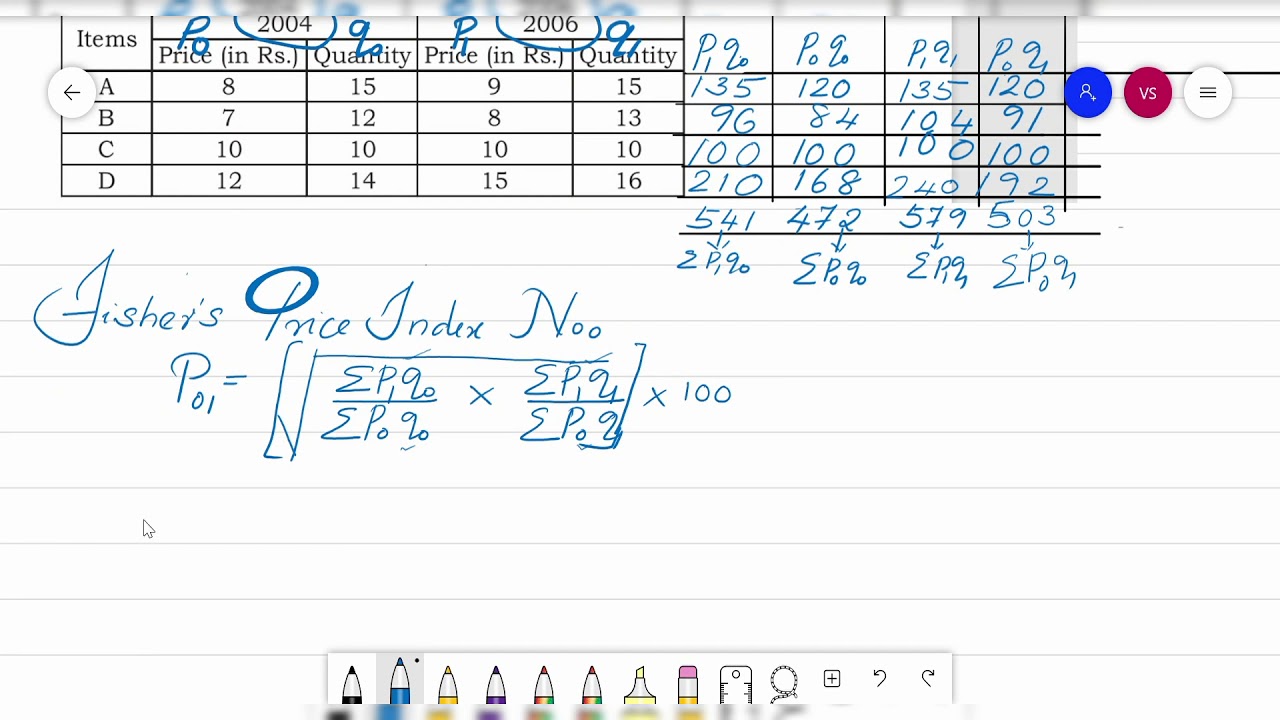 Items P0 2004 q0 P1 2006 q1 P1q0 P0q0 P1q1 P0q1
Price (in Rs.) Quantity Price (in Rs.) Quantity
A 8 15 9 15 135 120 135 120
B 7 12 8 13 96 84 104 91
C 10 10 10 10 100 100 100 100
D 12 14 15 16 210 168 240 192
541 472 579 503
ΣP1q0 ΣP0q0 ΣP1q1 ΣP0q1
VS
Fisher's Price Index No.
P01 = [√ ΣP1q0 / ΣP0q0 × ΣP1q1 / ΣP0q1 ] × 100